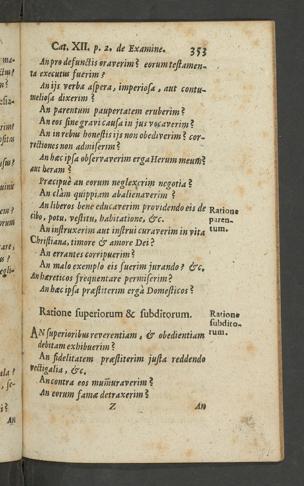 Cat. XII. p. 2. de Examine. 353
An pro defunctis oraverim? eorum testamen-
ta executus fuerim?
An ijs verba aspera, imperiosa, aut contu-
meliosa dixerim?
An parentum paupertatem eruberim?
An eos sine gravi causa in jus vocaverim?
An in rebus honestis ijs non obediverim? cor-
rectiones non admiserim?
An hæc ipsa observaverim erga Herum meum?
aut heram?
Præcipuè an eorum neglexerim negotia?
An clàm quippiam abalienaverim?
An liberos bene educaverim providendo eis de
cibo, potu, vestitu, habitatione, &c.
Ratione
paren-
tum.
An instruxerim aut instrui curaverim in vita
Christiana, timore & amore Dei?
An errantes corripuerim?
An malo exemplo eis fuerim jurando? &c,
An hæreticos frequentare permiserim?
An hæc ipsa præstiterim ergà Domesticos?
Ratione superiorum & subditorum.
Ratione
subdito-
rum.
AN superioribus reverentiam, & obedientiam
debitam exhibuerim?
An fidelitatem præstiterim justa reddendo
vectigalia, &c.
An contra eos mumuraverim?
An eorum famæ detraxerim?
Z An